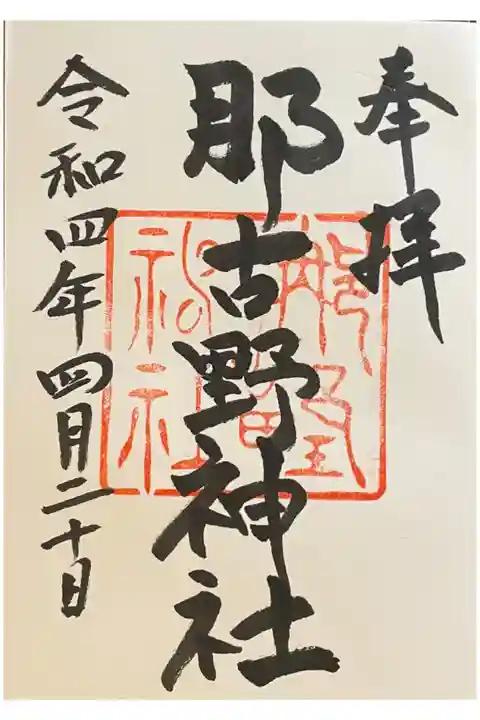 奉拝
那古野神社
令和四年四月二十日